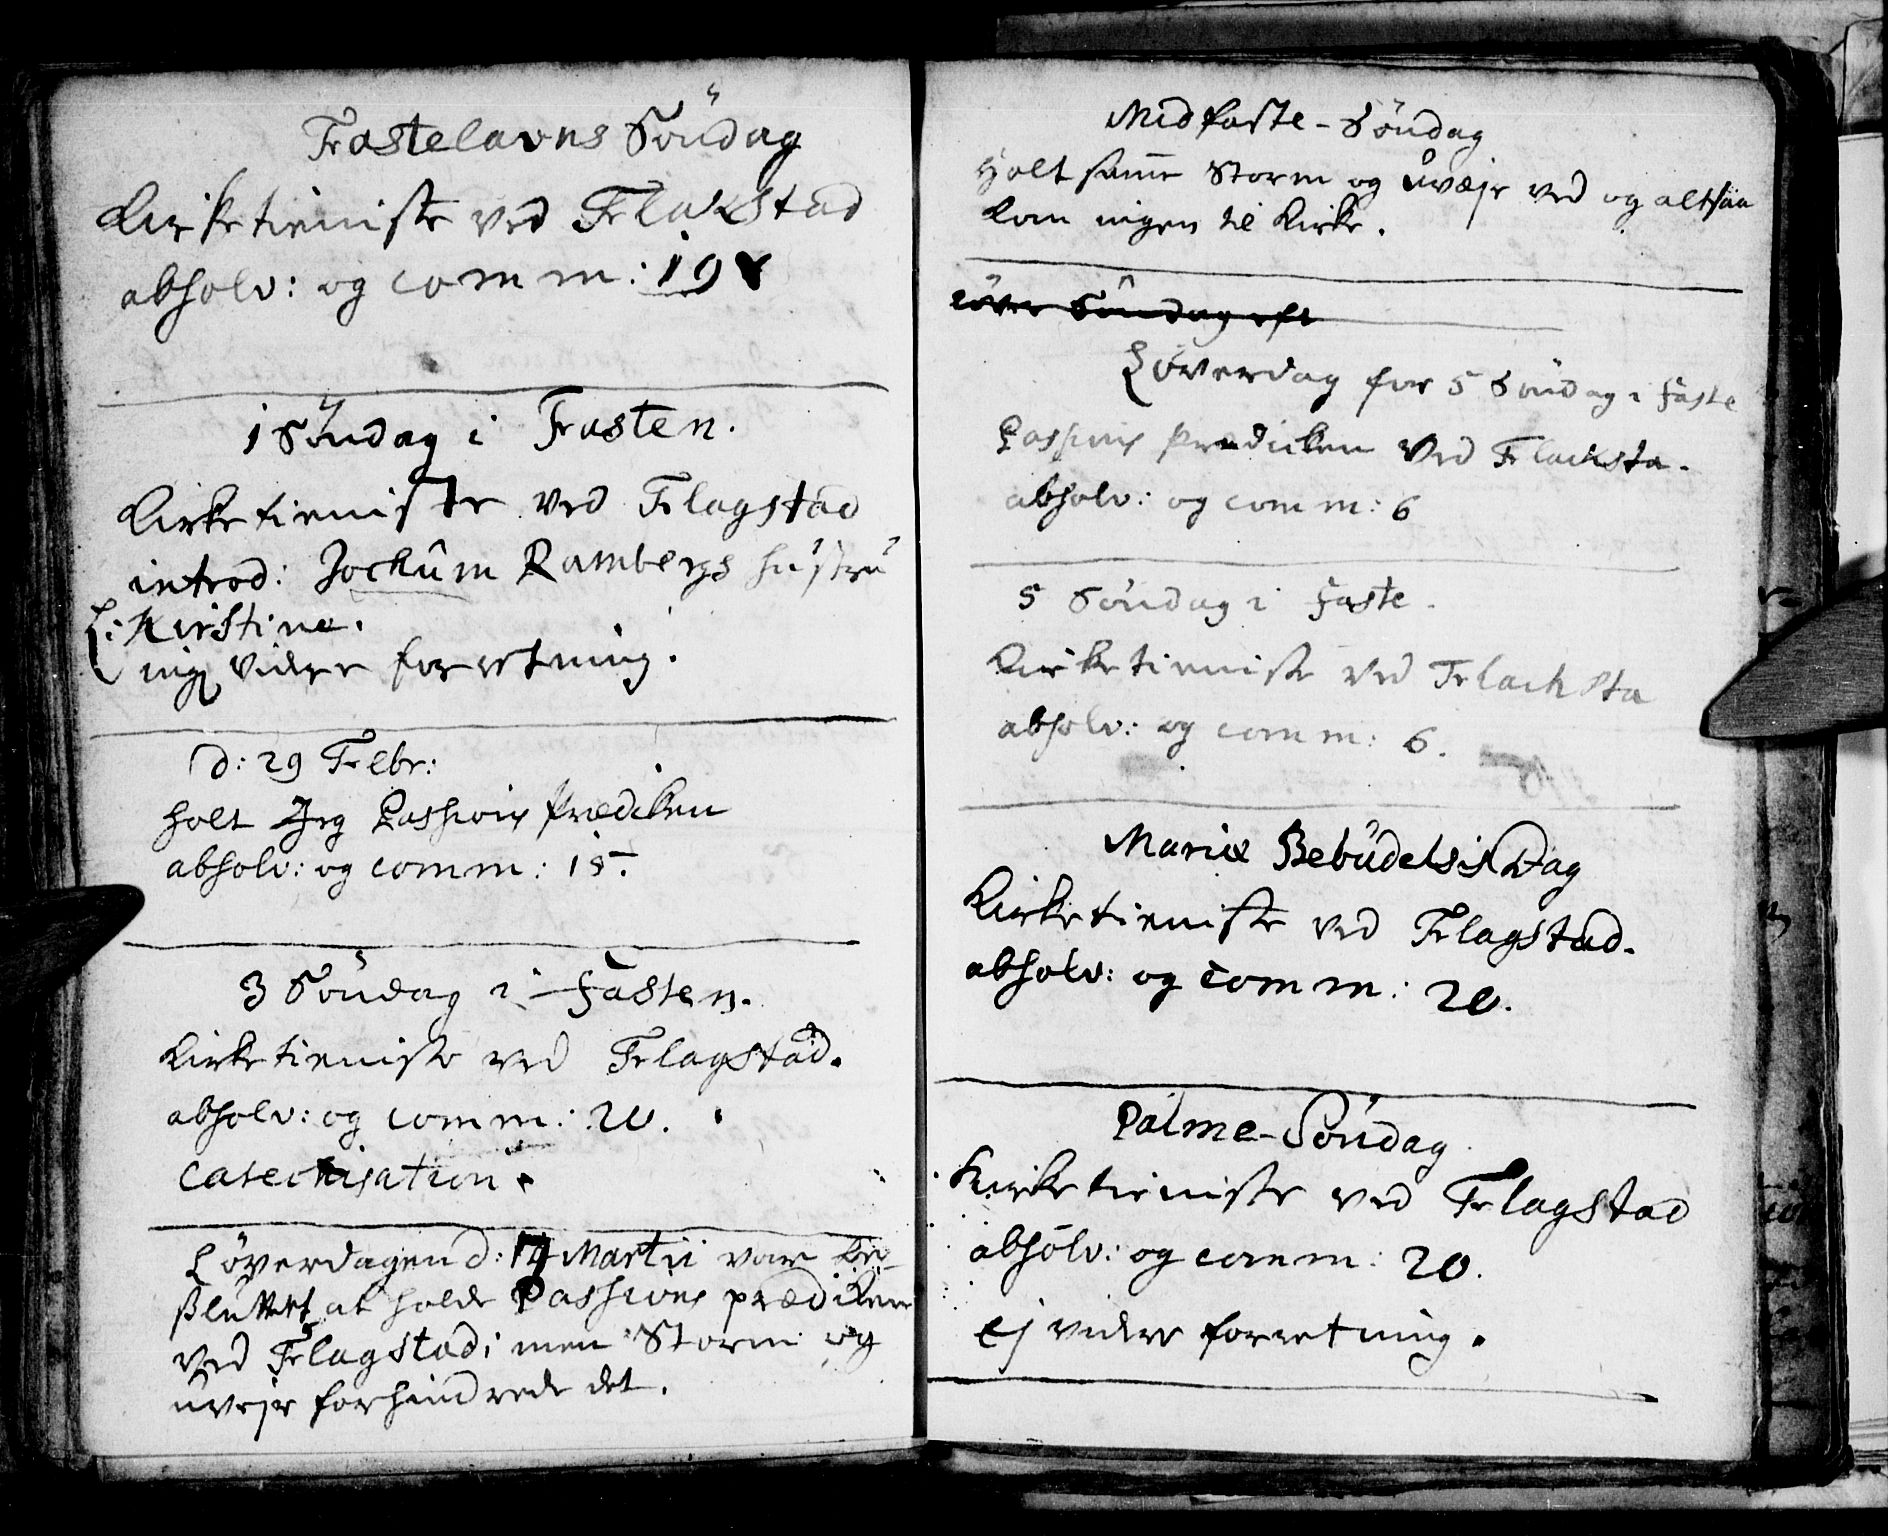 Fastelavns Söndag
Kirketieniste ved Flakstad
absolv: og comm: 19
1 Söndag i Fasten.
Kirketieniste ved Flagstad
introd: Jochum Rambergs hustru
Kirstine.
ing videre forretning.
d: 29 Febr:
holt Jeg Passions Prædiken
absolv: og comm: 15.
3 Söndag i Fasten.
Kirketieniste ved Flagstad.
absolv: og comm: 20.
Catechisation.
Löverdagen d: 14 Martii var be-
sluttet at holde Passions prædiken
ved Flagstad; men Storm og
uvejr forhindrede det.
Midfaste-Söndag
Holt samme Storm og uvæjr ved og altsaa
kom ingen til Kirke.
Söndag eft
Löverdag for 5 Söndag i Faste
Passions Prædiken ved Flacksta.
absolv: og comm: 6
5 Söndag i Faste.
Kirketieniste ved Flacksta
absolv: og comm: 6.
Mariæ Bebudelsis Dag
Kirketieniste ved Flagstad.
absolv: og comm: 20.
Palme-Söndag
Kirketieniste ved Flagstad
absolv: og comm: 20.
ej videre forretning.